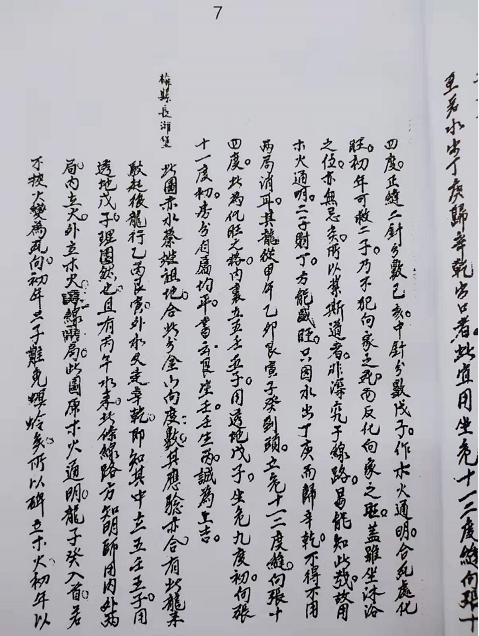 7
至若水出丁庚歸辛乾出口者此宜用坐危十一二度縫向張十
四度正縫二針分數己亥中針分數戊子作水火通明合死處化
旺初年可救二子乃不犯向家之死而反化向家之旺蓋雖坐沐浴
之位亦無忌矣所以業斯道者非深究子線路曷能知此哉故用
木火通明二子財丁方能盛旺只因水出丁庚而歸辛乾不得不用
兩局消耳其龍從甲卯乙卯艮寅子癸到頭立危十一二度縫向張十
四度此為化旺之格內裏立五壬五子用透地戊子坐危九度初向張
十一度初毒分自屬均平書云艮坐壬壬坐丙誠為上吉
梅縣長灘堡
此圖亦水蔡姓祖地合此分金八向度數其應驗亦合有此龍來
敀起後龍行乙丙艮寅外水又走辛乾即知其中立五壬五子用
透地戊子理固然也且有丙午水來此條線路方知明師用內外兩
局內立火外立木天線局此圖席木火通明龍子癸入首若
不挨火變為死向初年二子難免螟蛉矣所以碑立木火初年以